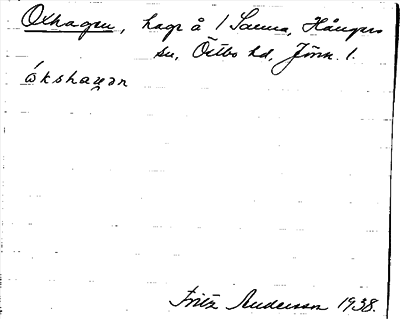 Oxhagen, hage å 1 Sanna, Hångers
sn, Östbo hd, Jönk. l.
ókshagən
Fritz Anderson 1938.